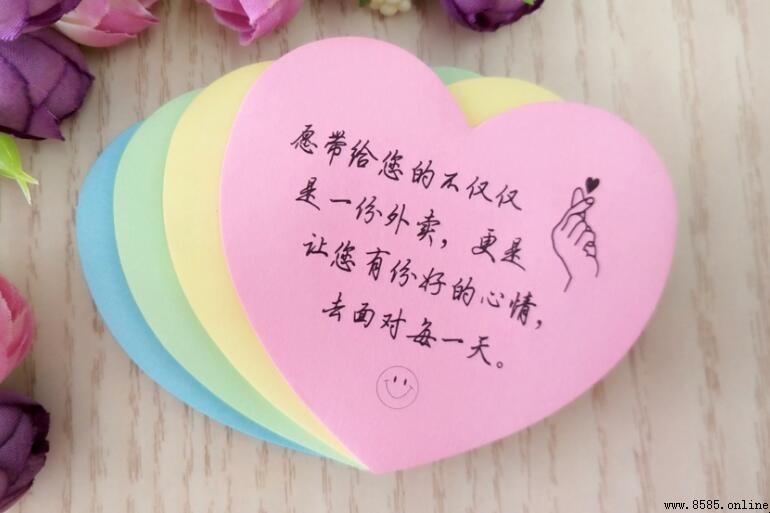 愿带给您的不仅仅
是一份外卖，更是
让您有份好的心情，
去面对每一天。
www.8585.online